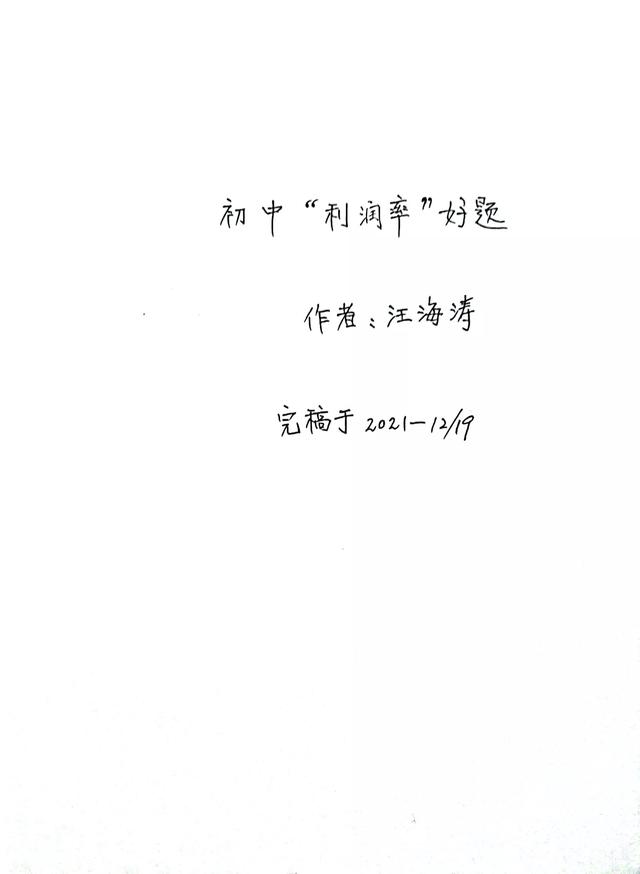 初中“利润率”好题
作者：汪海涛
完稿于 2021-12/19